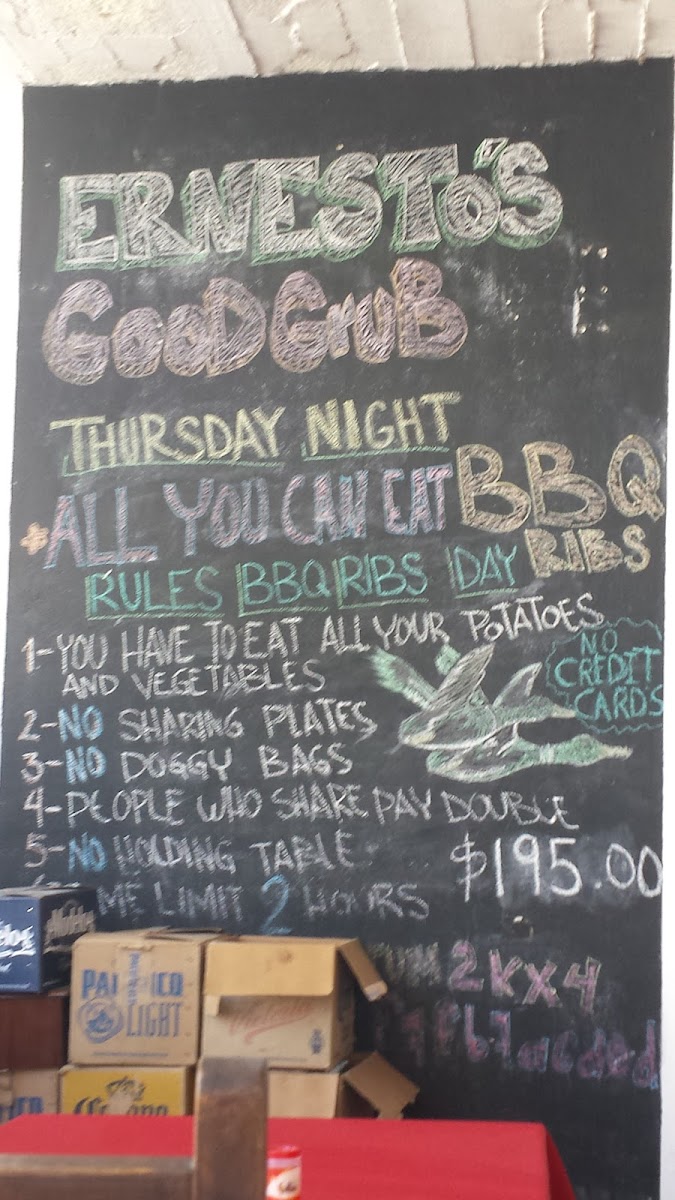 ERNESTO'S
GOOD GruB
THURSDAY NIGHT
$ALL YOU CAN EAT BBQ
RIBS
RULES BBQ RIBS DAY
1-YOU HAVE TO EAT ALL YOUR POTATOES
AND VEGETABLES
NO
CREDIT
CARDS
2-NO SHARING PLATES
3-NO DOGGY BAGS
4-PEOPLE WHO SHARE PAY DOUBLE
5-NO HOLDING TABLE
$195.00
LIMIT 2 HOURS
2kx4
LIGHT
Corona